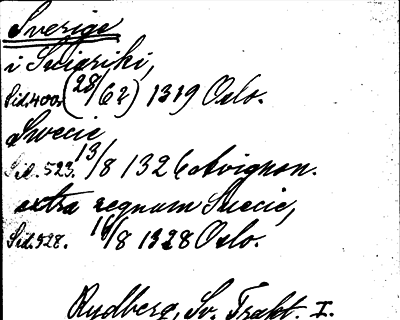 Sverige
i Sviariki,
Sid. 400. (28/6?) 1319 Oslo.
Svecie,
Sid. 523. 13/8 1326 Avignon.
extra regnum Suecie,
Sid. 528. 16/8 1328 Oslo.
Rydberg, Sv. Trakt. I.